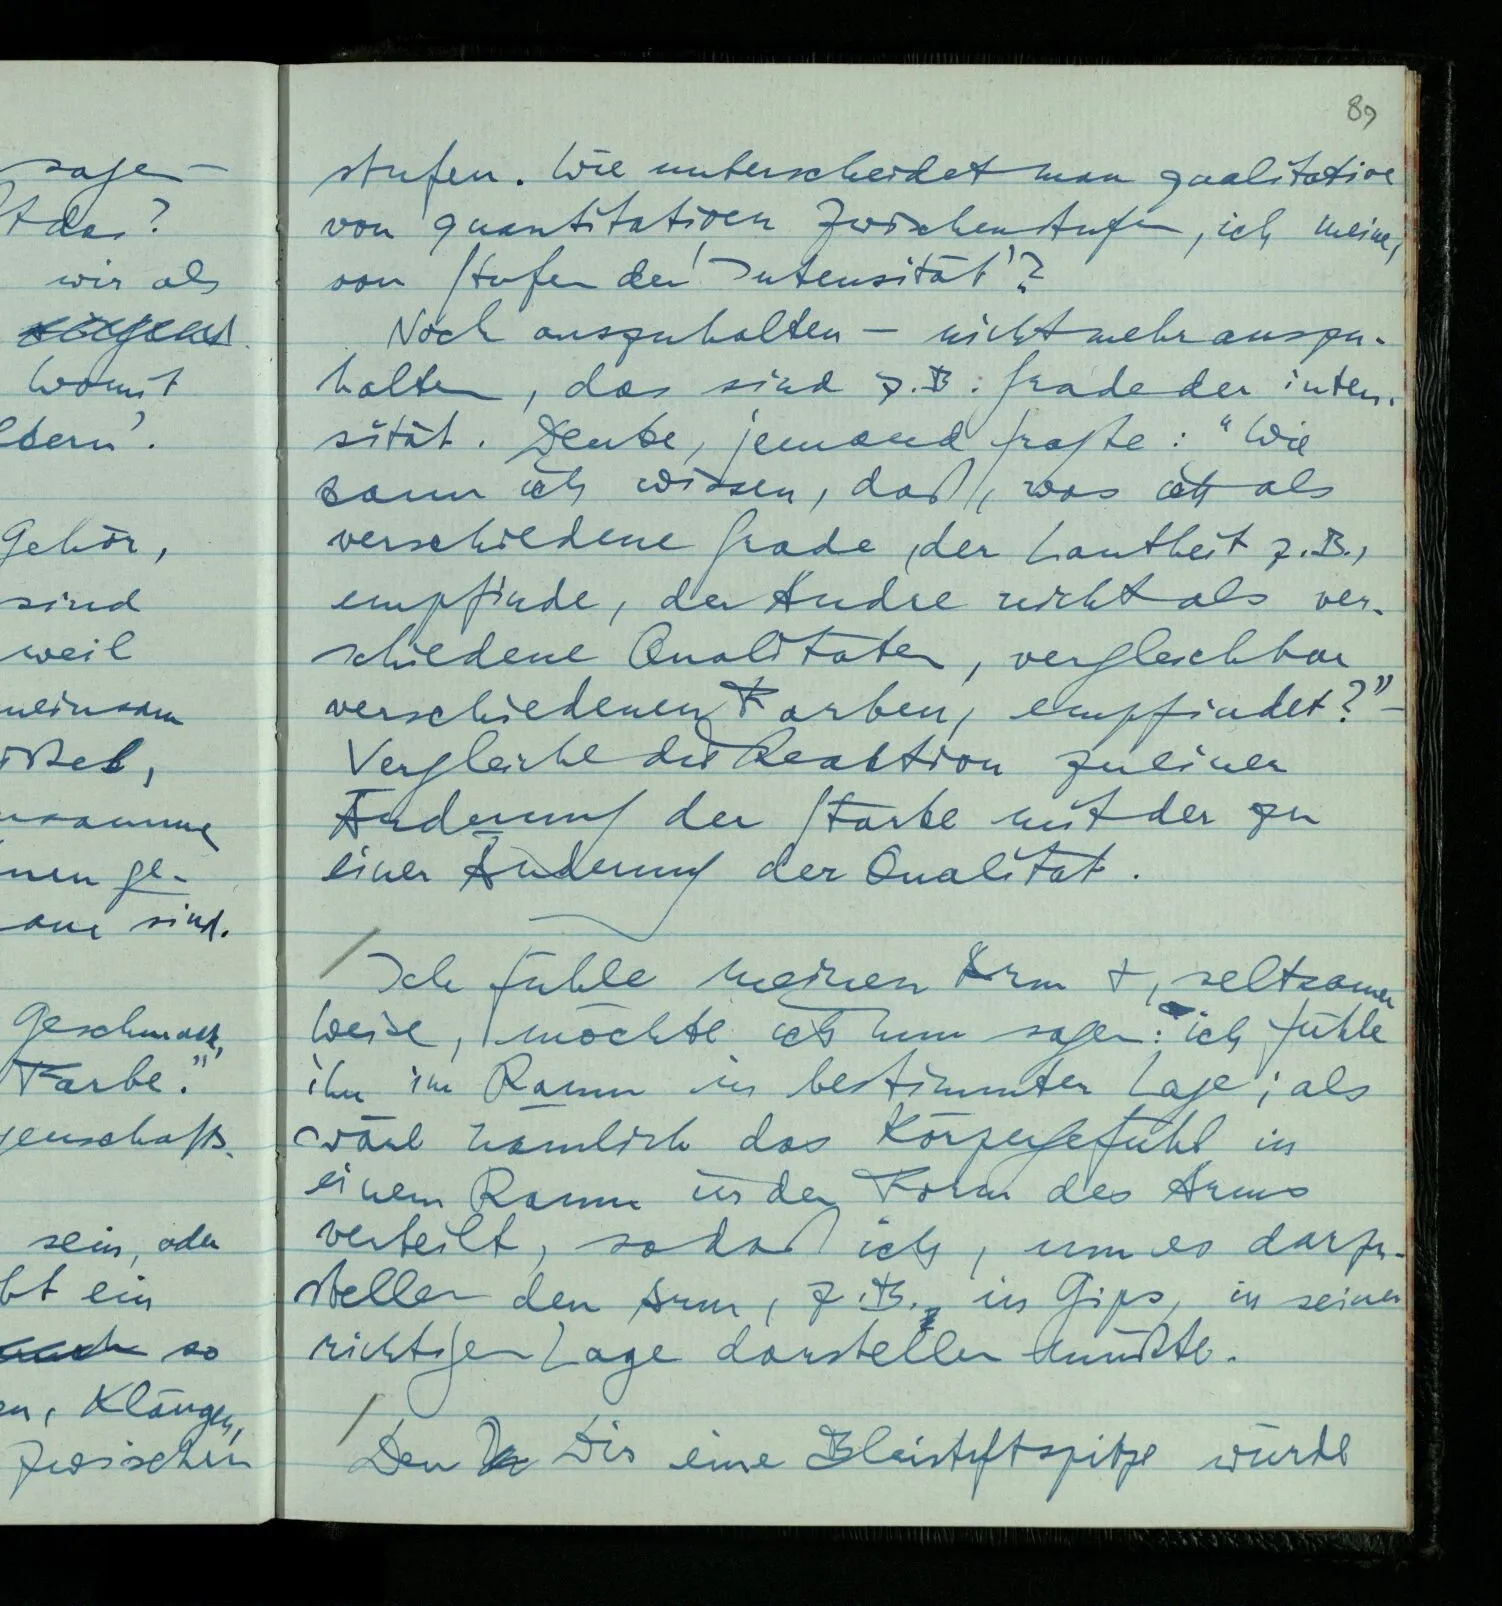 89
sagen –
t das?
wir als
womit
ldern'.
Gehör,
sind
weil
meinsam
nen ge-
sind.
Geschmack,
Farbe."
genschafts-
sein, oder
bt ein
so
en, Klängen,
zwischen
stufen. Wie unterscheidet man qualitative
von quantitativen Zwischenstufen, ich meine,
von Stufen der 'Intensität'?
Noch auszuhalten – nicht mehr auszu-
halten, das sind z.B. Grade der Inten-
sität. Denke, jemand fragte: "Wie
kann ich wissen, daß, was ich als
verschiedene Grade, der Lautheit z.B.,
empfinde, der Andre nicht als ver-
schiedene Qualitäten, vergleichbar
verschiedenen Farben, empfindet?" –
Vergleiche die Reaktion zu einer
Änderung der Stärke mit der zu
einer Änderung der Qualität.
/ Ich fühle meinen Arm +, seltsamer
Weise, möchte ich nun sagen: ich fühle
ihn im Raum in bestimmter Lage; als
wäre nämlich das Körpergefühl in
einem Raum in der Form des Arms
verteilt, sodaß ich, um es darzu-
stellen den Arm, z.B., in Gips, in seiner
richtigen Lage darstellen müßte.
/ Den Dir eine Bleistiftspitze würde